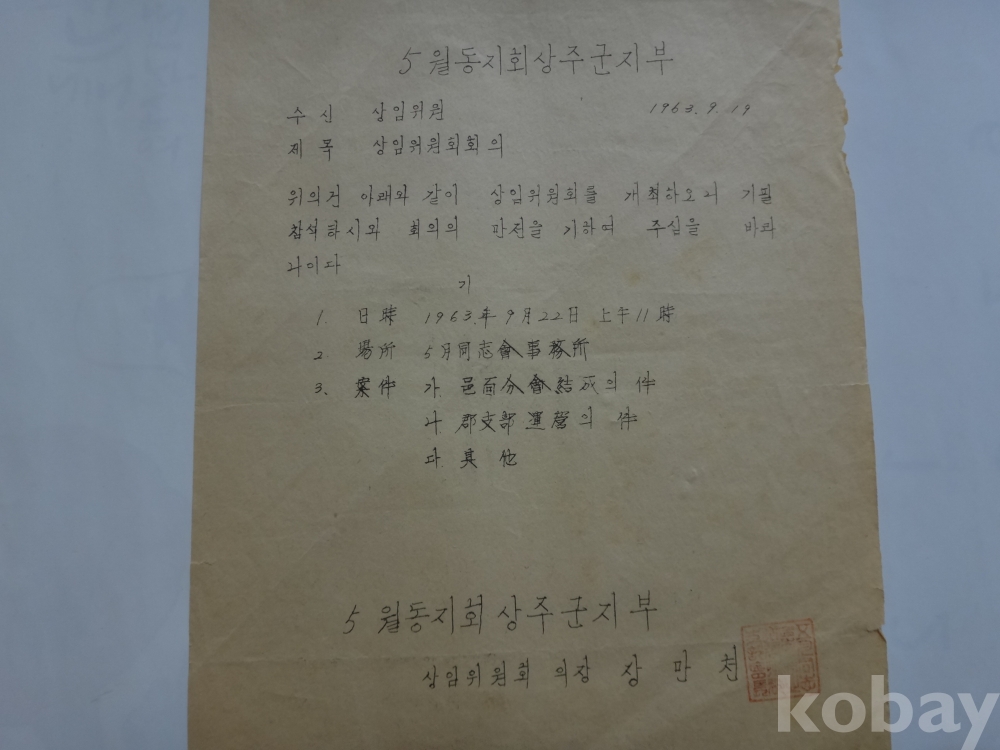 5월동지회상주군지부
수신 상임위원 1963.9.19
제목 상임위원회회의
위의건 아래와 같이 상임위원회를 개최하오니 기필
참석하시와 회의의 만전을 기하여 주심을 바라
나이다
기
1. 日時 1963.年 9月 22日 上午 11時
2 場所 5月同志會事務所
3. 案件 가. 邑面分會結成의 件
나 郡支部運營의 件
다. 其他
5월동지회상주군지부
상임위원회 의장 장만천
kobay